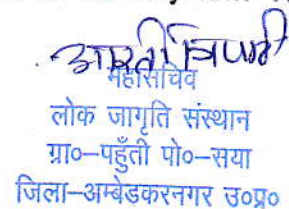 आरती त्रिपाठी
महासचिव
लोक जागृति संस्थान
ग्रा०–पहुँती पो०–सया
जिला–अम्बेडकरनगर उ०प्र०